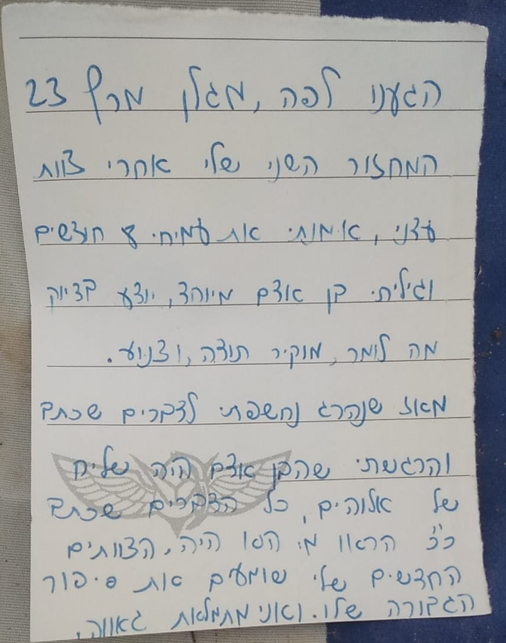 הגענו לפה, מגלן מרץ 23
המחזור השני שלי אחרי צוות
עדני, אימנתי את עמיחי 8 חודשים
וגיליתי בן אדם מיוחד, יודע בדיוק
מה לומר, מוקיר תודה, וצנוע.
מאז שנהרג נחשפתי לדברים שכתב
והרגשתי שהבן אדם היה שליח
של אלוהים, כל הדברים שכתב
כ"כ הראו מי הוא היה, הצוותים
החדשים שלי שומעים את סיפור
הגבורה שלו. ואני מתמלאת גאווה,